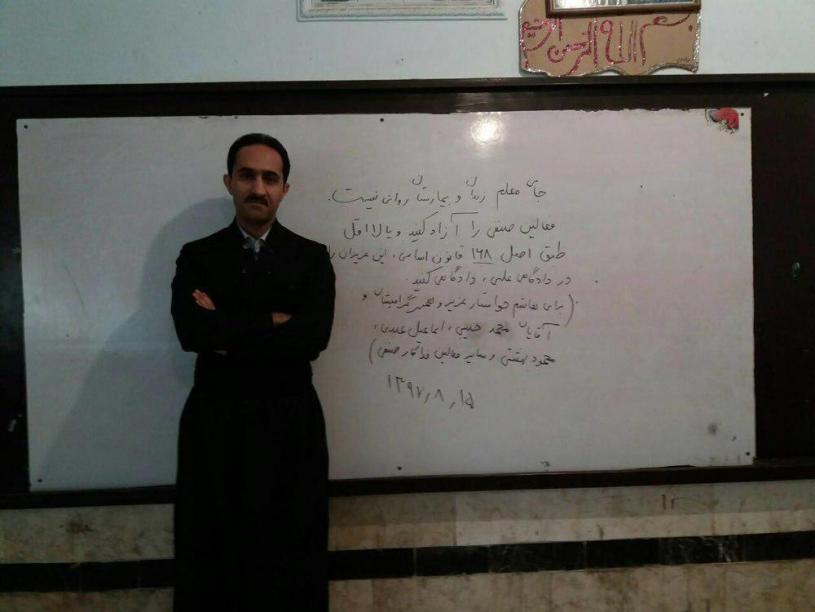 بسم الله الرحمن الرحیم
جای معلم زندان و بیمارستان روانی نیست.
فعالین صنفی را آزاد کنید و یا لااقل
طبق اصل ۱۶۸ قانون اساسی، این عزیزان را
در دادگاهی علنی، دادگاهی کنید.
(برای هاشم خواستار عزیز و همسر گرامیشان و
آقایان محمد حبیبی، اسماعیل عبدی،
محمود بهشتی و سایر فعالین صنفی)
۱۳۹۷٫۸٫۱۵